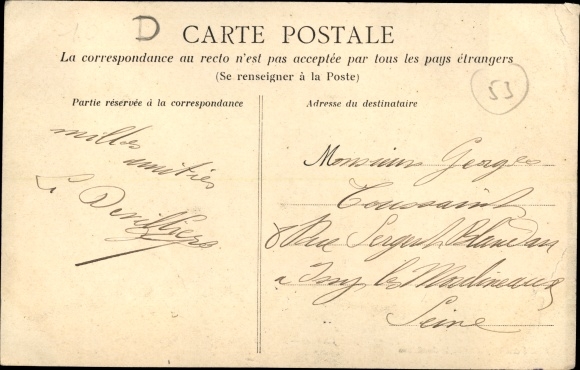 D
CARTE POSTALE
La correspondance au recto n'est pas acceptée par tous les pays étrangers
(Se renseigner à la Poste)
53
Partie réservée à la correspondance
Adresse du destinataire
milles
amitiés
L Devilliers
Monsieur Georges
Toussaint
8 Rue Sergent Blandan
a Issy les Moulineaux
Seine